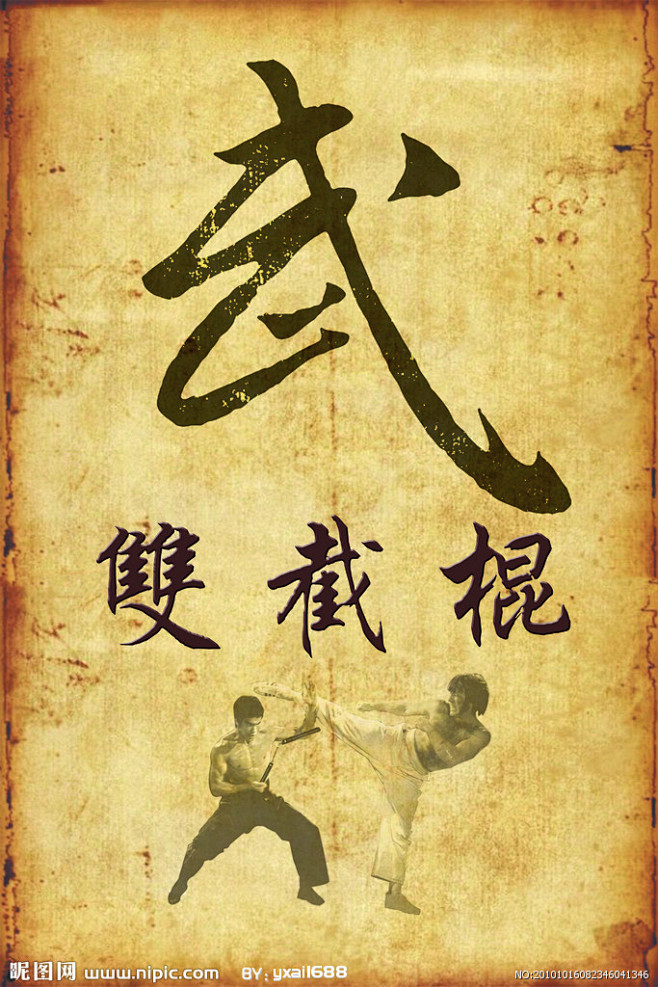 武
雙截棍
昵图网 www.nipic.com BY: yxail688 NO:20101016082346041346